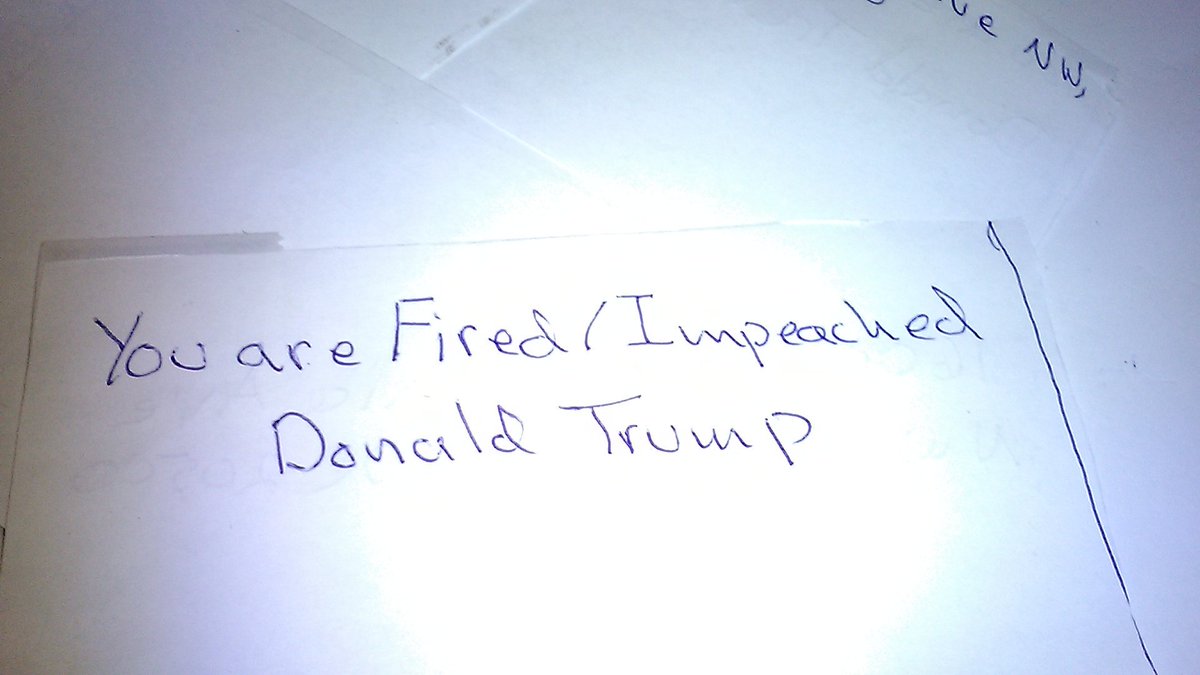 ve NW,
You are Fired/Impeached
Donald Trump